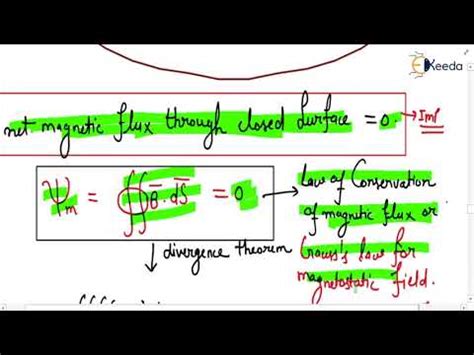 Ekeeda
net magnetic flux through closed surface = 0. → Imp
Ψm = ∯ B̄ · dS̄ = 0 → Law of Conservation
of magnetic flux or
Gauss's law for
magnetostatic field.
↓ divergence theorem